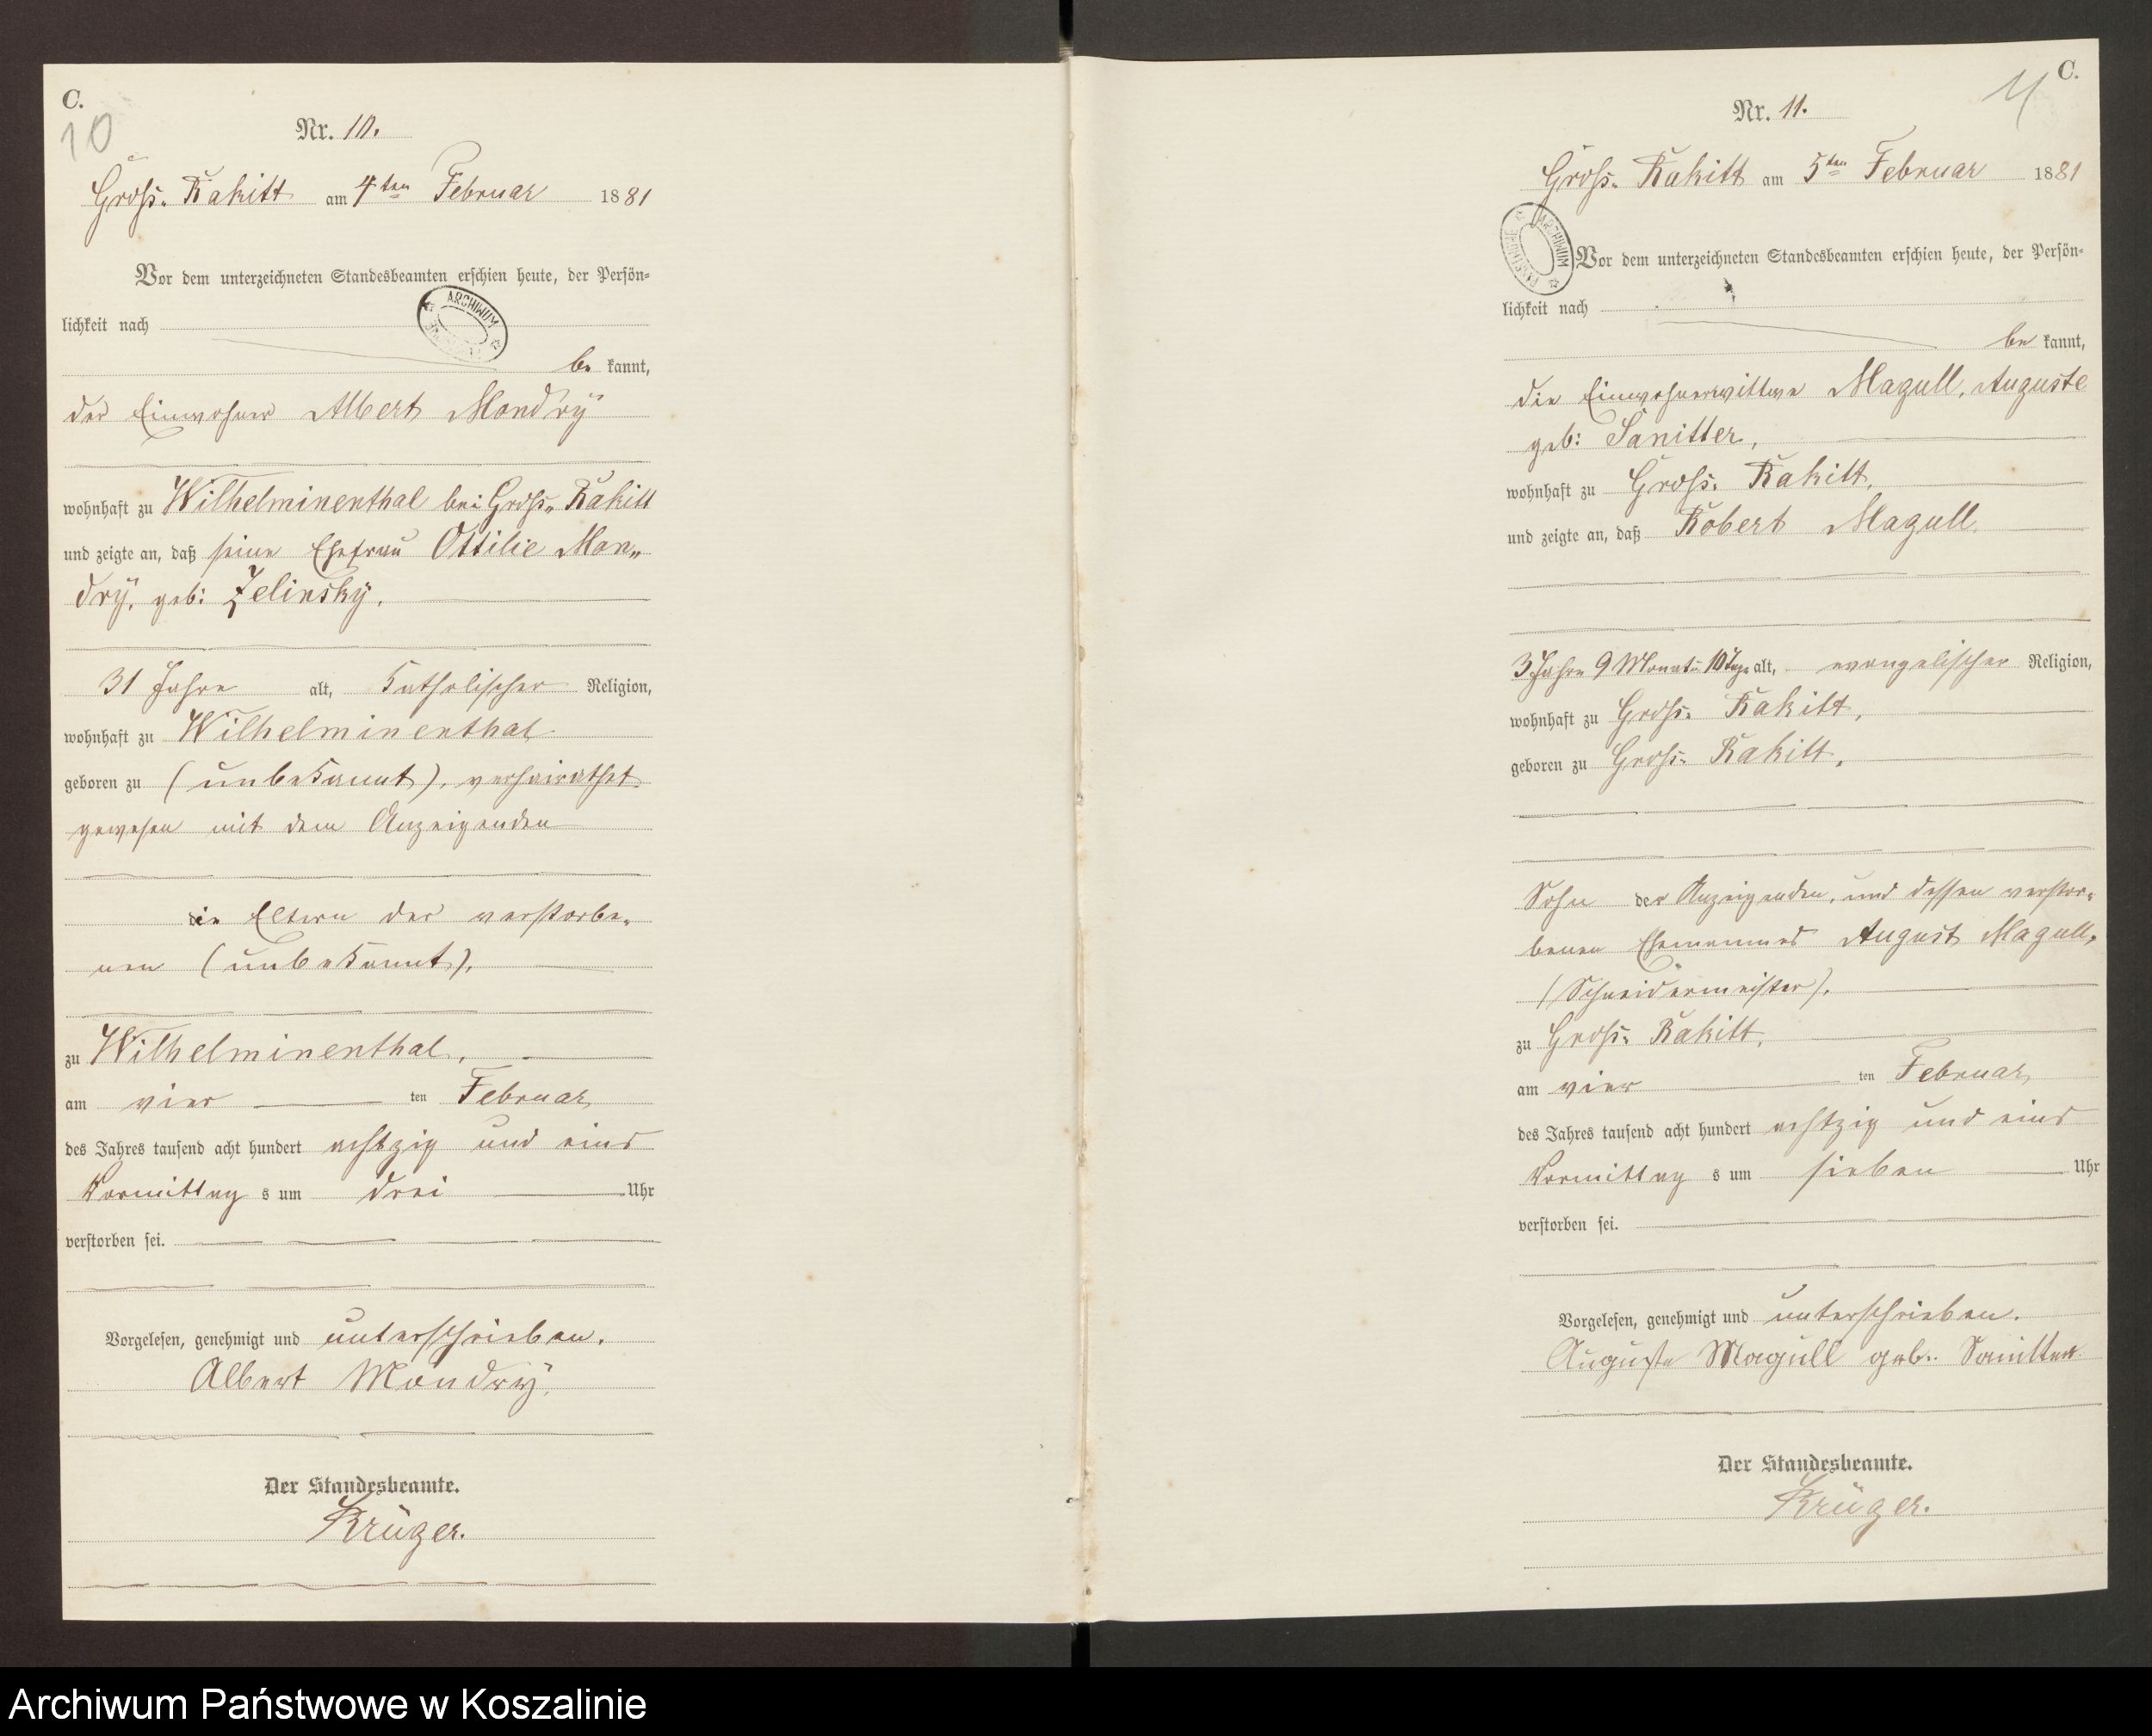 C.
10
Nr. 10.
Groß-Rakitt am 4ten Februar 1881
Vor dem unterzeichneten Standesbeamten erschien heute, der Persön-
lichkeit nach
ARCHIWUM
be kannt,
der Einwohner Albert Mondrÿ
wohnhaft zu Wilhelminenthal bei Groß-Rakitt
und zeigte an, daß seine Ehefrau Ottilie Mon-
drÿ, geb: Zelinskÿ,
31 Jahre alt, katholischer Religion,
wohnhaft zu Wilhelminenthal
geboren zu (unbekannt), verheirathet
gewesen mit dem Anzeigenden
die Eltern der verstorbe-
nen (unbekannt),
zu Wilhelminenthal,
am vier ten Februar
des Jahres tausend acht hundert achtzig und eins
Vormittag s um drei Uhr
verstorben sei.
Vorgelesen, genehmigt und unterschrieben.
Albert Mondrÿ.
Der Standesbeamte.
Krüger.
C.
11
Nr. 11.
Groß-Rakitt am 5ten Februar 1881
ARCHIWUM
Vor dem unterzeichneten Standesbeamten erschien heute, der Persön-
lichkeit nach
be kannt,
die Einwohnerwittwe Magull, Auguste
geb: Sanitter,
wohnhaft zu Groß-Rakitt,
und zeigte an, daß Robert Magull
3 Jahre 9 Monate 10 Tage alt, evangelischer Religion,
wohnhaft zu Groß-Rakitt,
geboren zu Groß-Rakitt,
Sohn der Anzeigenden, und dessen verstor-
benen Ehemannes August Magull,
(Schneidermeister),
zu Groß-Rakitt,
am vier ten Februar
des Jahres tausend acht hundert achtzig und eins
Vormittag s um sieben Uhr
verstorben sei.
Vorgelesen, genehmigt und unterschrieben.
Auguste Magull geb. Sanitter
Der Standesbeamte.
Krüger.
Archiwum Państwowe w Koszalinie